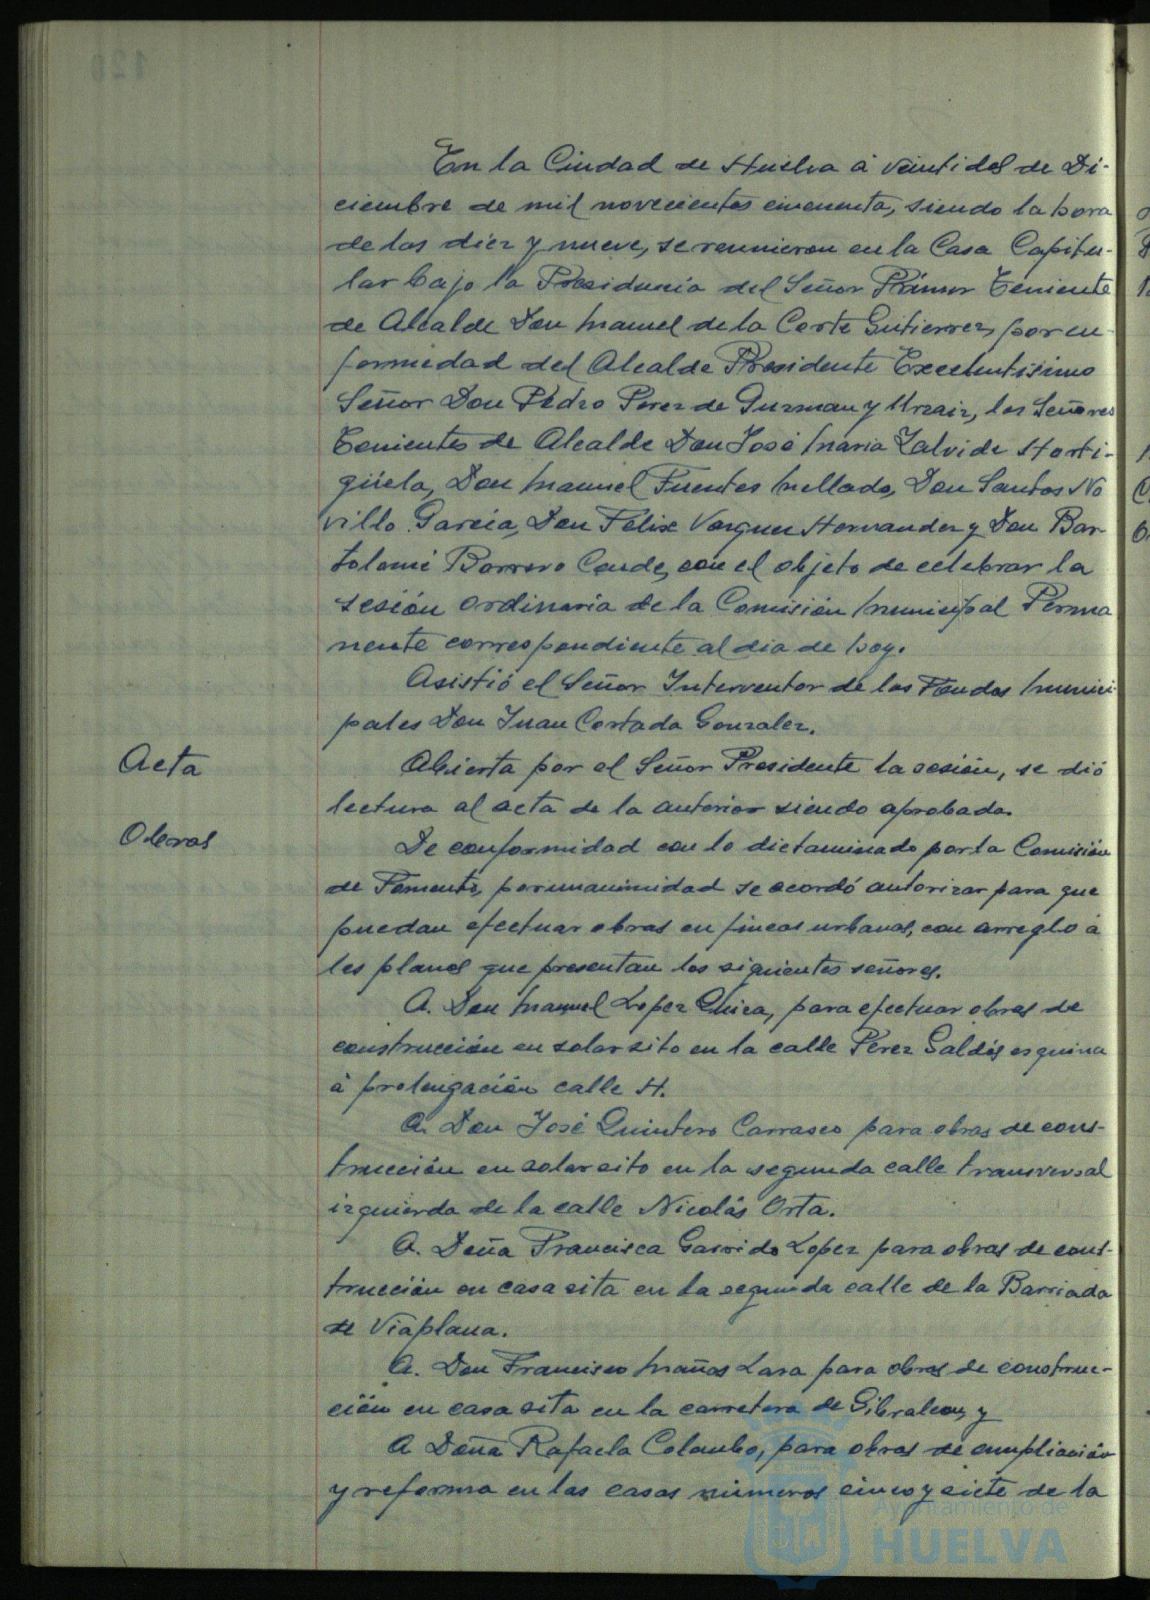 En la Ciudad de Huelva á veintidos de Di-
ciembre de mil novecientos cincuenta, siendo la hora
de las diez y nueve, se reunieron en la Casa Capitu-
lar bajo la Presidencia del Señor Primer Teniente
de Alcalde Don Manuel de la Corte Gutierrez, por en-
fermedad del Alcalde Presidente Excelentisimo
Señor Don Pedro Perez de Guzman y Urzaiz, los Señores
Tenientes de Alcalde Don José Maria Zalvide Horti-
güela, Don Manuel Fuentes Mellado, Don Santos No
villo Garcia, Don Félix Vazquez Hernandez y Don Bar-
tolomé Borrero Conde, con el objeto de celebrar la
sesión ordinaria de la Comisión Municipal Perma
nente correspondiente al dia de hoy.
Asistió el Señor Interventor de los Fondos Munici-
pales Don Juan Cortada Gonzalez.
Acta
Abierta por el Señor Presidente la sesión, se dió
lectura al acta de la anterior siendo aprobada.
Obras
De conformidad con lo dictaminado por la Comisión
de Fomento, por unanimidad se acordó autorizar para que
puedan efectuar obras en fincas urbanas, con arreglo á
los planos que presentan los siguientes señores.
A. Don Manuel Lopez Chica, para efectuar obras de
construcción en solar sito en la calle Pérez Galdós esquina
á prolongación calle H.
A. Don José Quintero Carrasco para obras de cons-
trucción en solar sito en la segunda calle transversal
izquierda de la calle Nicolás Orta.
A. Doña Francisca Garrido Lopez para obras de cons-
trucción en casa sita en la segunda calle de la Barriada
de Viaplana.
A. Don Francisco Mañas Lara para obras de construc-
ción en casa sita en la carretera de Gibraleon, y
A Doña Rafaela Colombo, para obras de ampliación
y reforma en las casas números cinco y siete de la
Ayuntamiento de
HUELVA